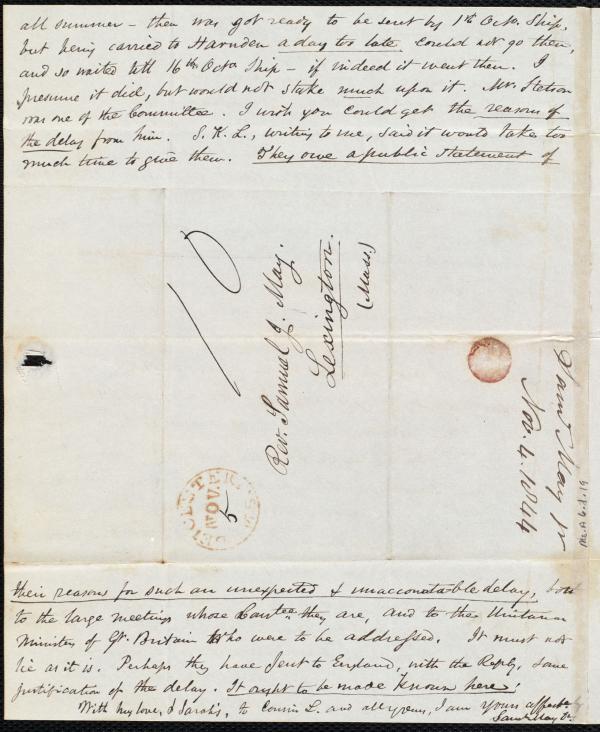 all summer – then was got ready to be sent by 1st Octo. Ship,
but being carried to Harnden a day too late could not go then,
and so waited till 16th Octo Ship – if indeed it went then. I
presume it did, but would not stake much upon it. Mr. Stetson
was one of the Committee. I wish you could get the reasons of
the delay from him. S. K. L., writing to me, said it would take too
much time to give them. They owe a public statement of
10
Rev. Samuel J. May.
Lexington.
(Mass.)
LEICESTER MS
NOV
5
Saml May Jr
Nov. 4. 1844
Ms. A.6.1.19
their reasons for such an unexpected & unaccountable delay, both
to the large meetings whose Comtee they are, and to the Unitarian
Ministers of Gt. Britain who were to be addressed. It must not
lie as it is. Perhaps they have sent to England, with the Reply, some
justification of the delay. It ought to be made known here!
With my love, & Sarah's, to Cousin L. and all yours, I am yours affectly
Saml May Jr.